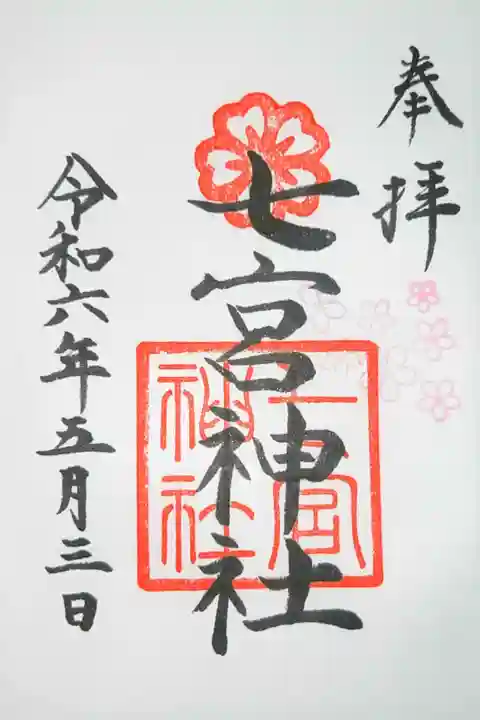 奉拝
七宮神社
七宮
神社
令和六年五月三日